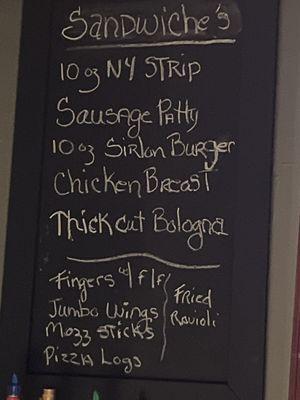 Sandwiche's
10 oz NY STRIP
Sausage Patty
10 oz Sirlon Burger
Chicken Breast
Thick cut Bologna
Fingers w/ f/f
Jumbo Wings
Mozz sticks
Pizza Logs
Fried
Ravioli